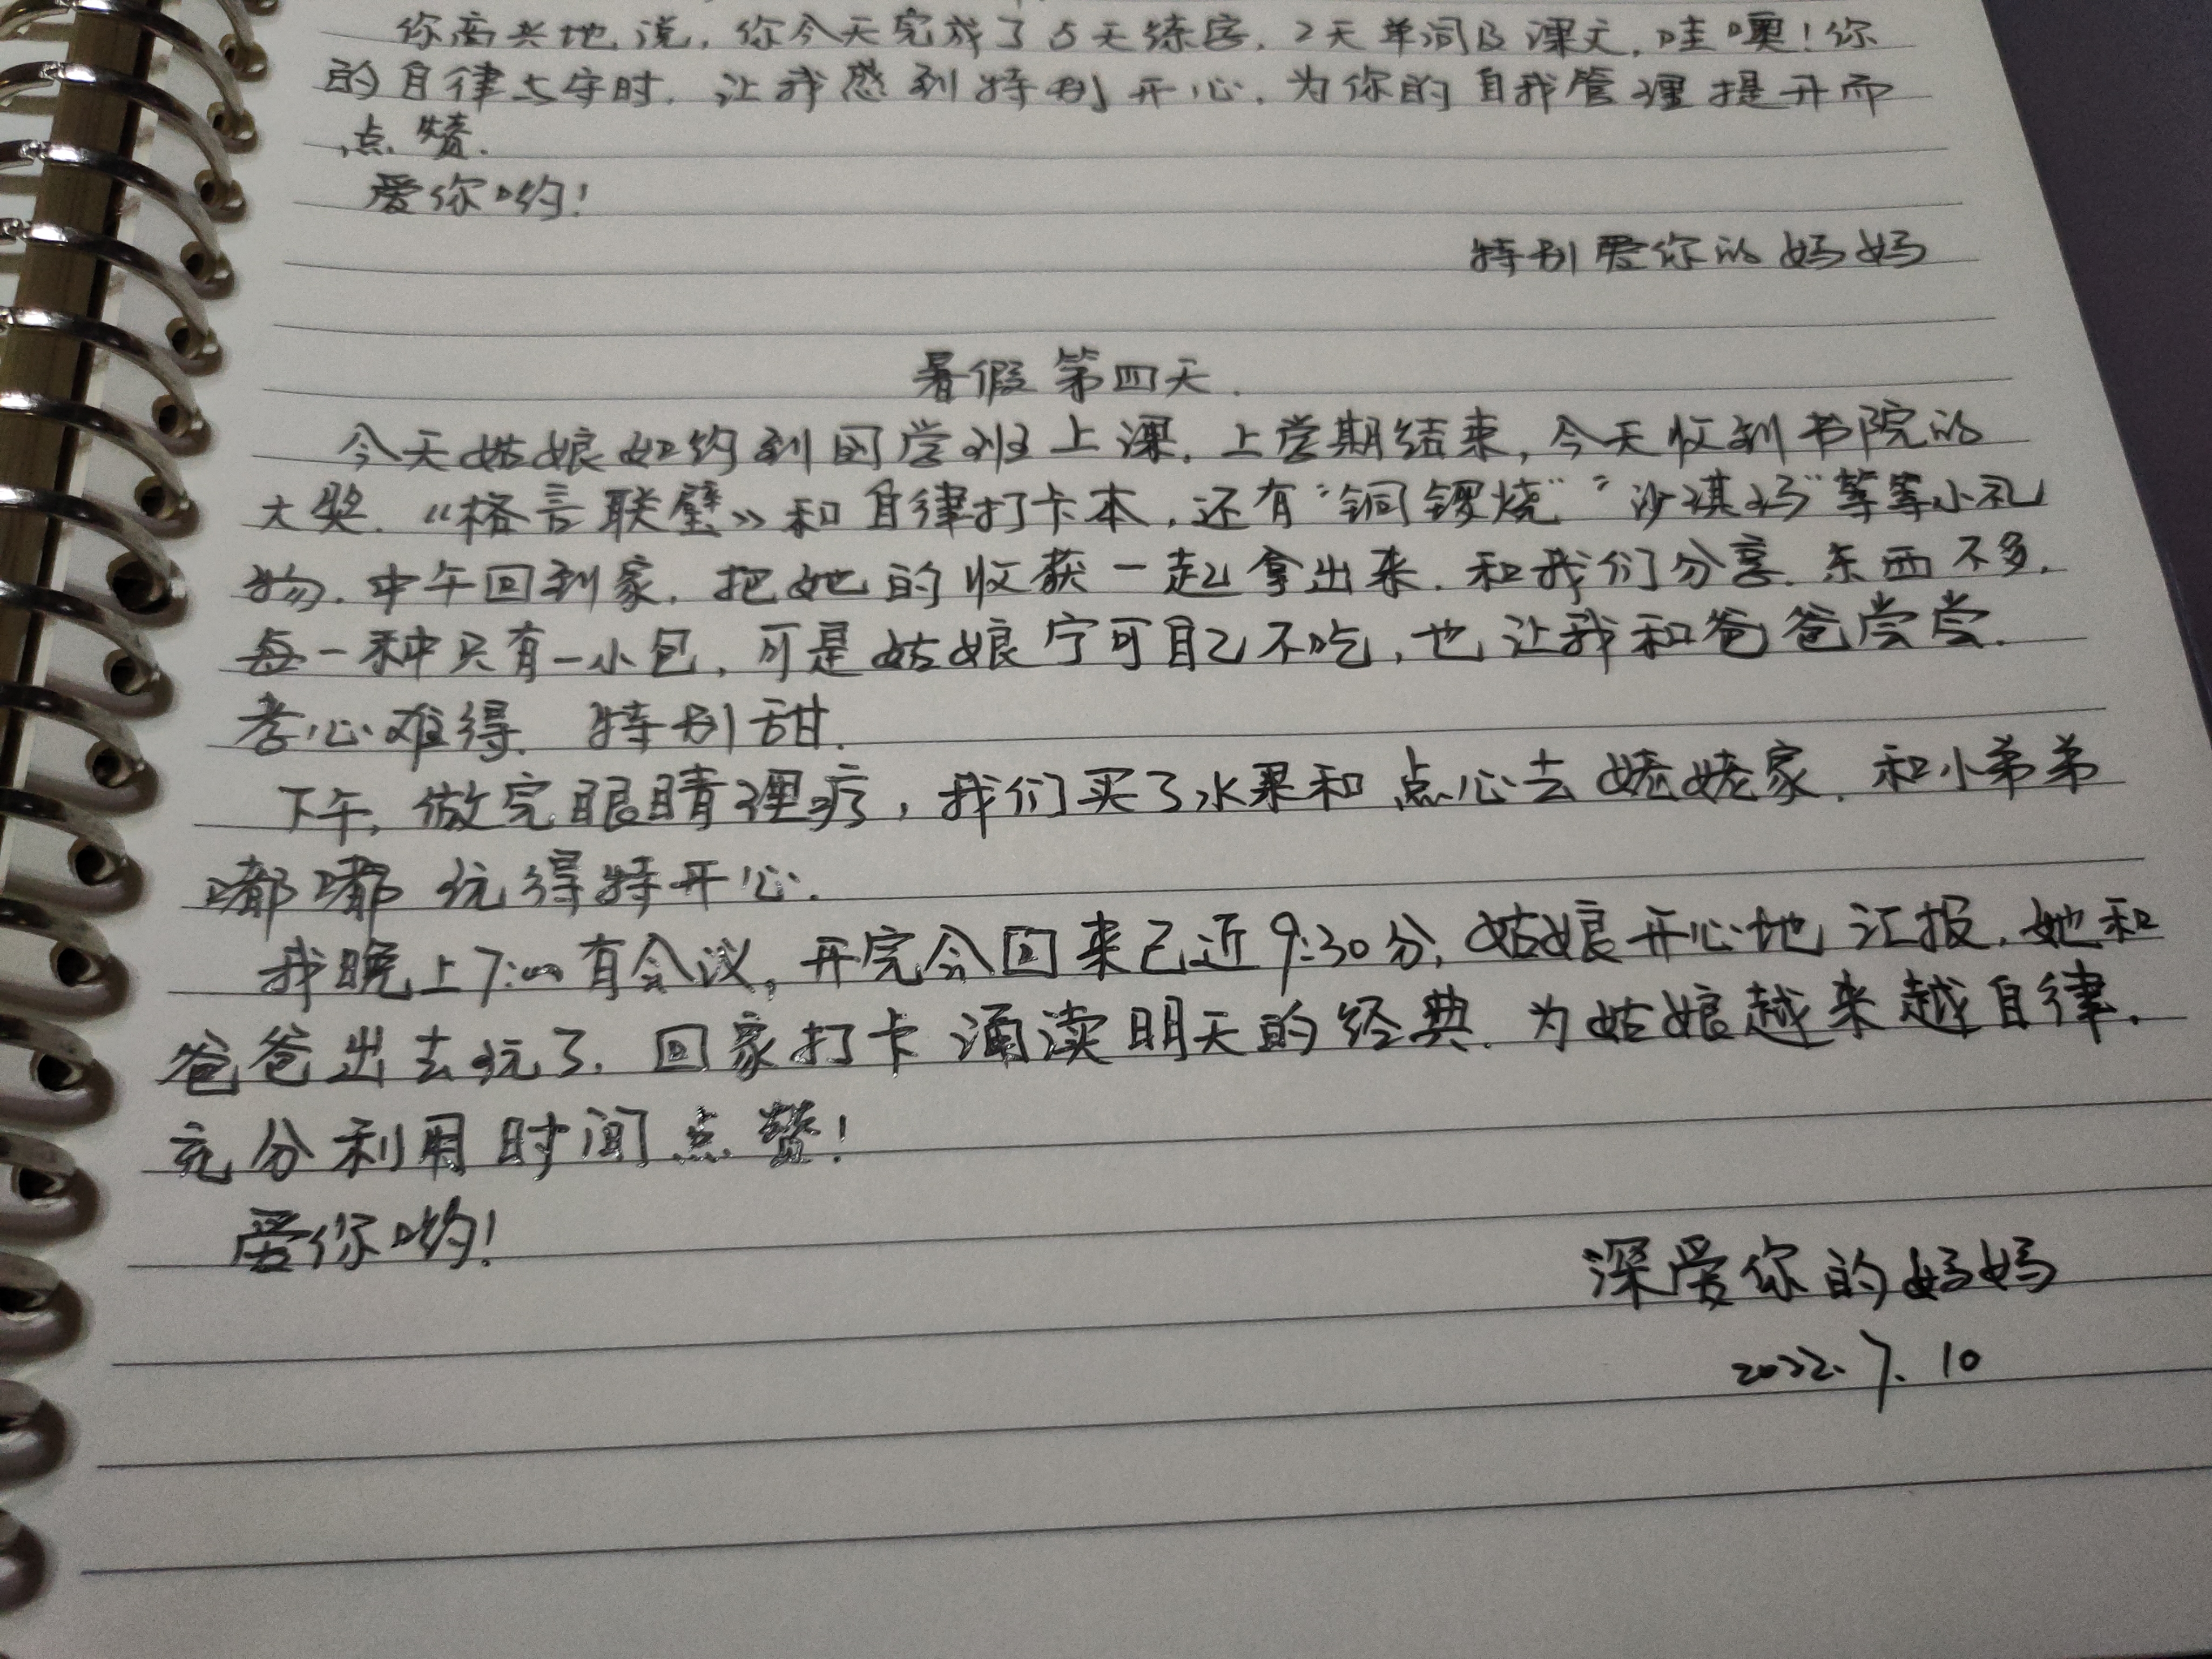 你高兴地说，你今天完成了5天练字，2天单词及课文，哇噢！你
的自律与守时，让我感到特别开心，为你的自我管理提升而
点赞．
爱你哟！
特别爱你的妈妈
暑假第四天．
今天姑娘如约到国学班上课，上学期结束，今天收到书院的
大奖．《格言联璧》和自律打卡本，还有“铜锣烧”“沙淇玛”等等小礼
物．中午回到家，把她的收获一起拿出来，和我们分享．东西不多，
每一种只有一小包，可是姑娘宁可自己不吃，也让我和爸爸尝尝．
孝心难得．特别甜．
下午，做完眼睛理疗，我们买了水果和点心去姥姥家，和小弟弟
嘟嘟玩得特开心．
我晚上7:00有会议，开完会回来已近9:30分，姑娘开心地汇报，她和
爸爸出去玩了，回家打卡诵读明天的经典．为姑娘越来越自律，
充分利用时间点赞！
爱你哟！
深爱你的妈妈
2022.7.10